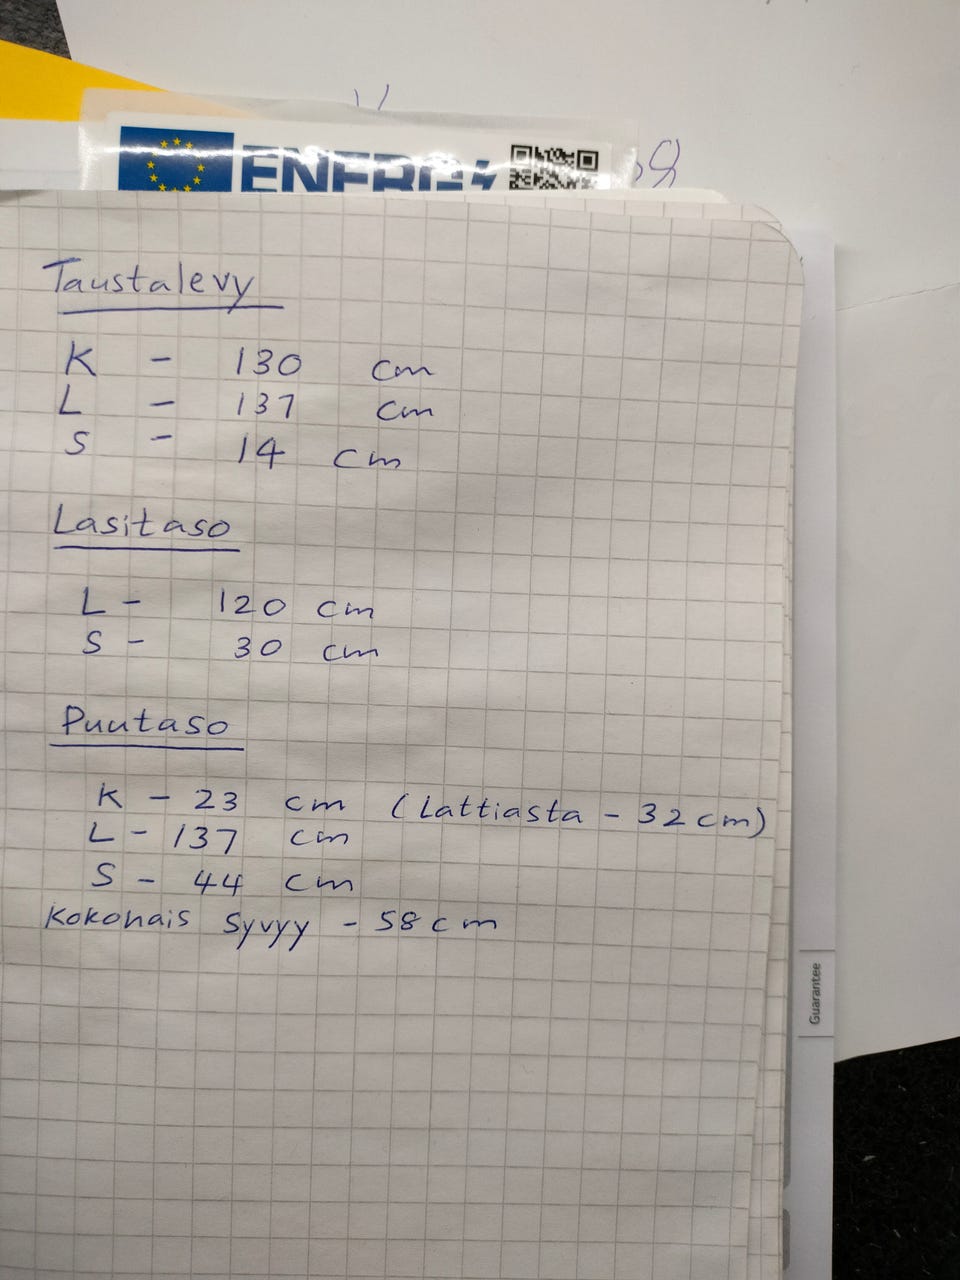 ENERG
Taustalevy
K - 130 cm
L - 137 cm
S - 14 cm
Lasitaso
L - 120 cm
S - 30 cm
Puutaso
K - 23 cm (Lattiasta - 32 cm)
L - 137 cm
S - 44 cm
Kokonais Syvyy - 58 cm
Guarantee